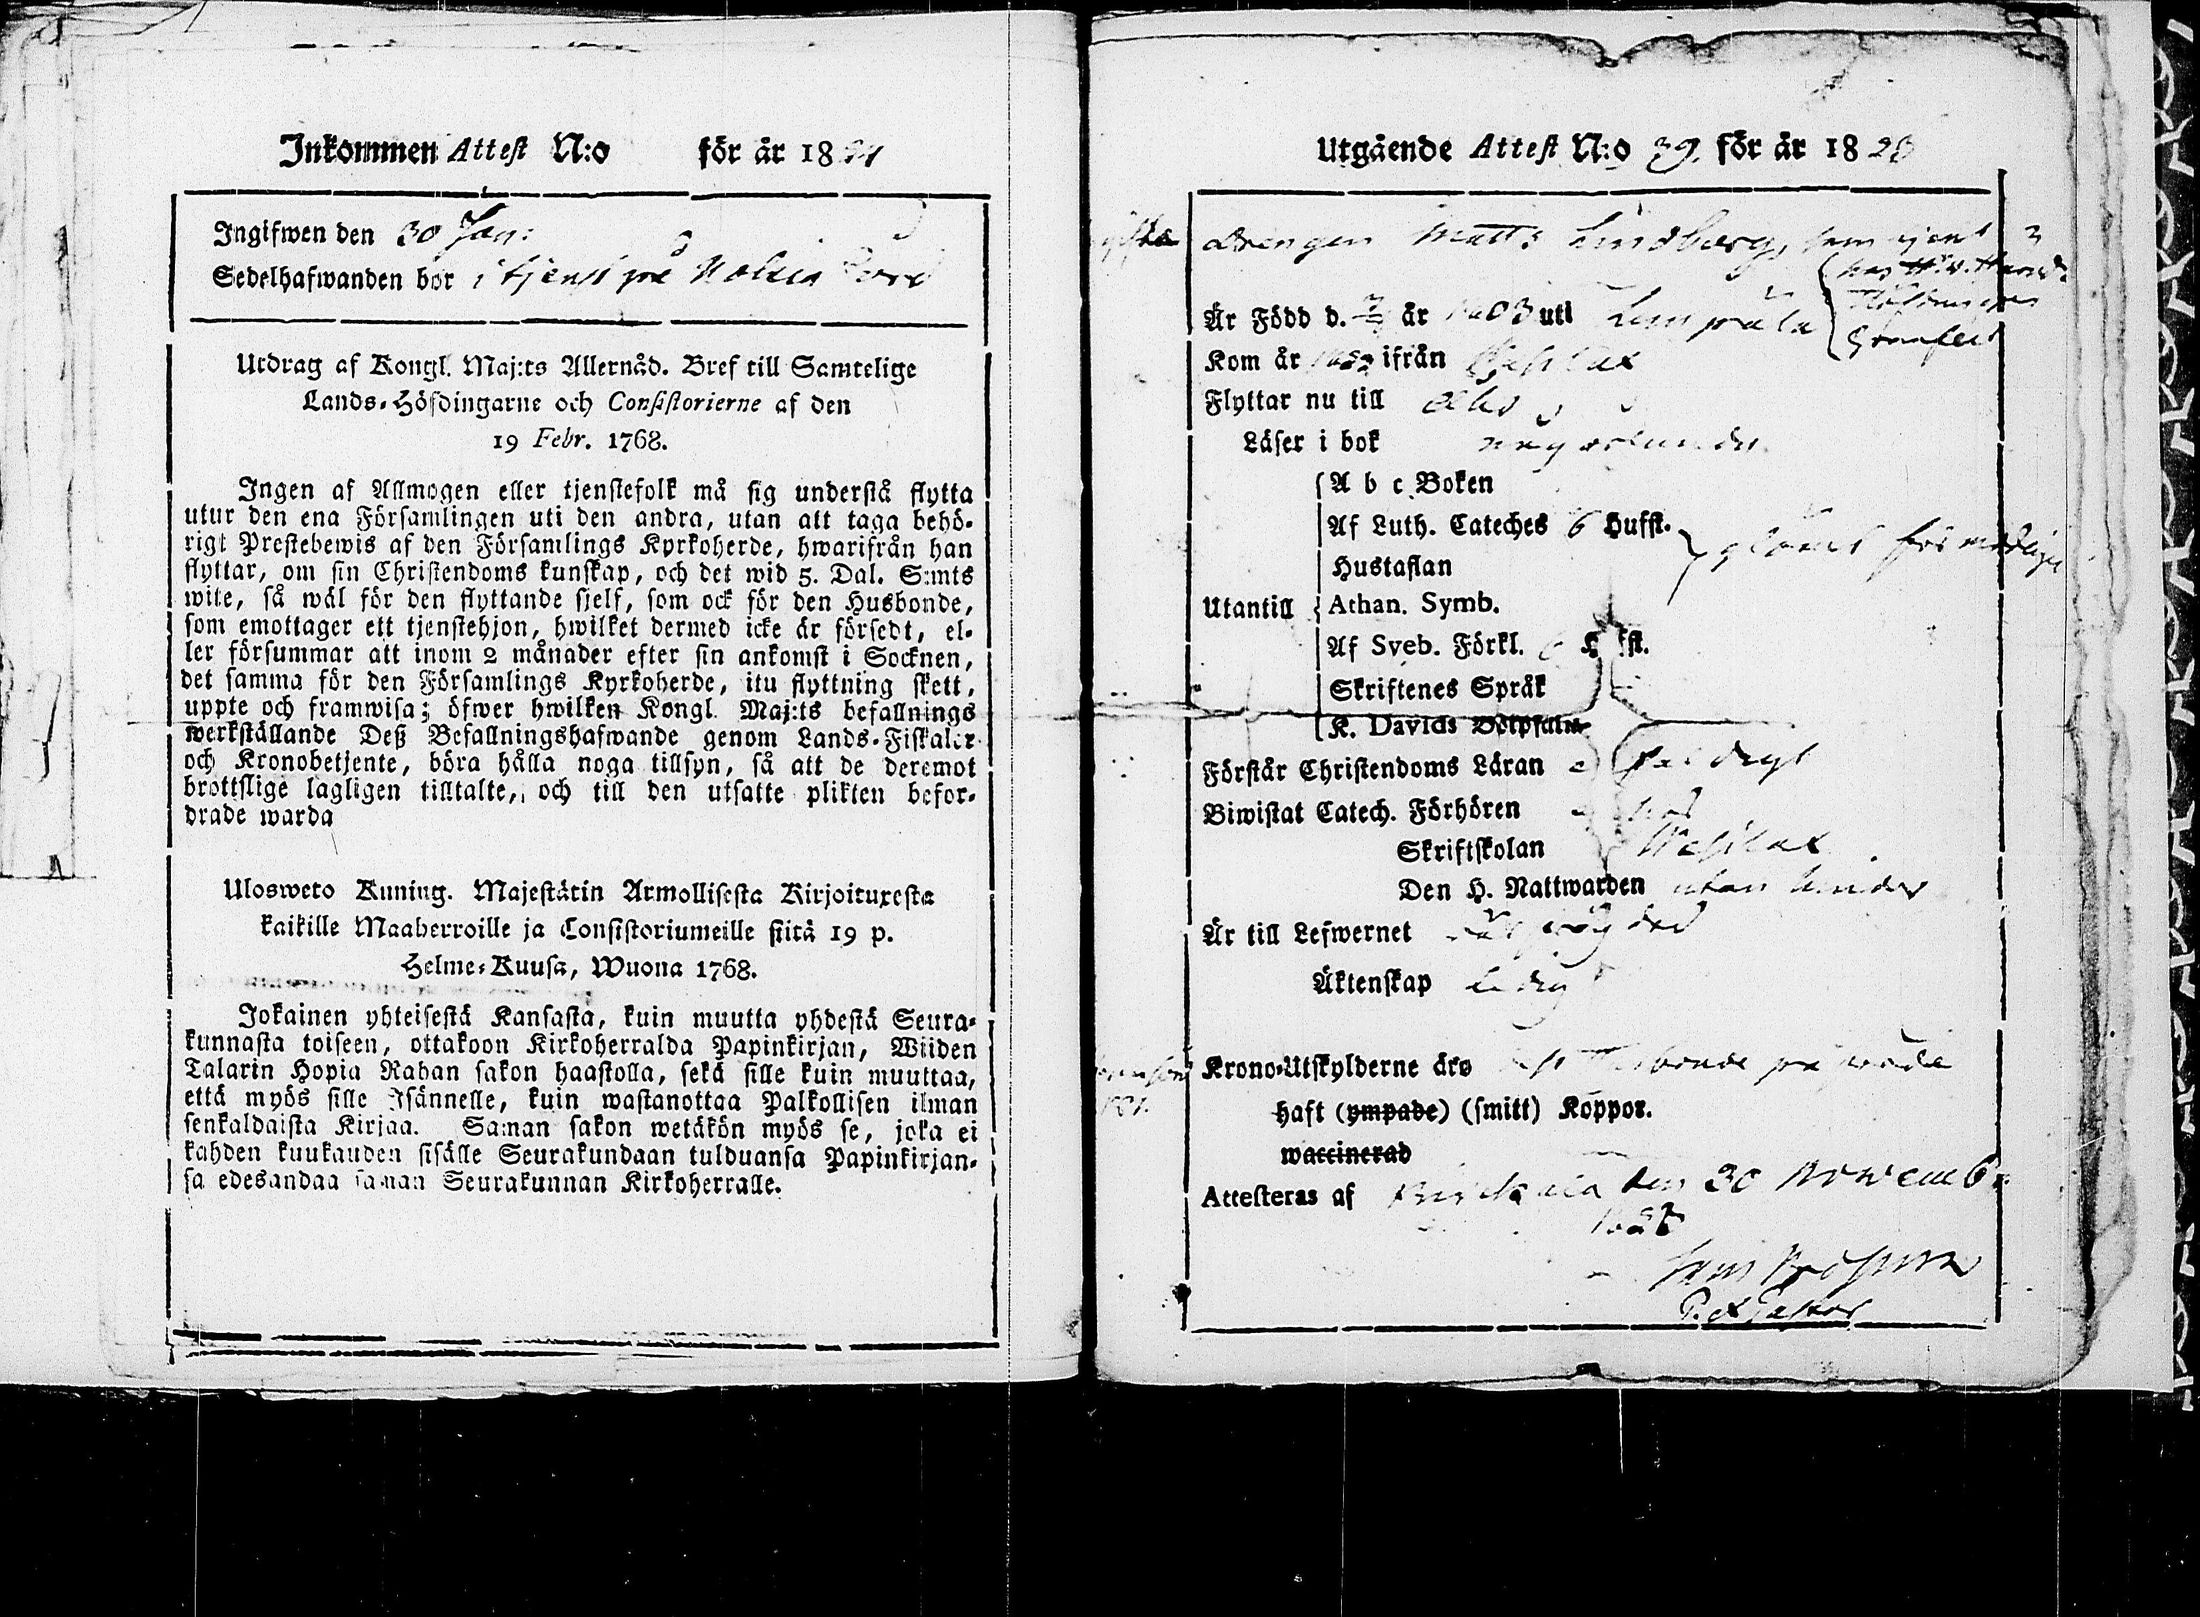 Inkommen Attest N:o för år 1824
Ingifwen den 30 Jan:
Sedelhafwanden bor i tjenst på
Utdrag af Kongl. Maj:ts Allernåd. Bref till Samtelige
Lands-Höfdingarne och Consistorierne af den
19 Febr. 1768.
Ingen af Allmogen eller tjenstefolk må sig understå flytta
utur den ena Församlingen uti den andra, utan att taga behö-
rigt Prestebewis af den Församlings Kyrkoherde, hwarifrån han
flyttar, om sin Christendoms kunskap, och det wid 5. Dal. S:mts
wite, så wäl för den flyttande sjelf, som ock för den Husbonde,
som emottager ett tjenstehjon, hwilket dermed icke är försedt, el-
ler försummar att inom 2 månader efter sin ankomst i Socknen,
det samma för den Församlings Kyrkoherde, itu flyttning skett,
uppte och framwisa; öfwer hwilken Kongl. Maj:ts befallnings
werkställande Deß Befallningshafwande genom Lands-Fiskaler
och Kronobetjente, böra hålla noga tillsyn, så att de deremot
brottslige lagligen tilltalte, och till den utsatte plikten befor-
drade warda
Ulosweto Kuning. Majestätin Armollisesta Kirjoituxesta
kaikille Maaherroille ja Consistoriumeille siitä 19 p.
Helme-Kuusa, Wuona 1768.
Jokainen yhteisestä Kansasta, kuin muutta yhdestä Seura-
kunnasta toiseen, ottakoon Kirkoherralda Papinkirjan, Wiiden
Talarin Hopia Rahan sakon haastolla, sekä sille kuin muuttaa,
että myös sille Isännelle, kuin wastanottaa Palkollisen ilman
senkaldaista Kirjaa. Saman sakon wetäkön myös se, joka ei
kahden kuukauden sisälle Seurakundaan tulduansa Papinkirjan-
sa edesandaa saman Seurakunnan Kirkoherralle.
Utgående Attest N:o 39. för år 1823
Drengen Matts Lindberg, som tjent
hos
Är Född d. är 1803 uti Lempäla
Kom år ifrån
Flyttar nu till Åbo
Läser i bok någorlunda
A b c Boken
Af Luth. Cateches 6 Hufst.
Hustaflan
Utantill Athan. Symb.
Af Sveb. Förkl. 6 Hufst.
Skriftenes Språk
K. Davids Botpsalm
Förstår Christendoms Läran
Biwistat Catech. Förhören
Skriftskolan
Den H. Nattwarden utan hinder
Är till Lefwernet
Äktenskap ledig
Krono-Utskylderne äro
haft (ympade) (smitt) Koppor.
waccinerad
Attesteras af den 30 Novemb:
1823